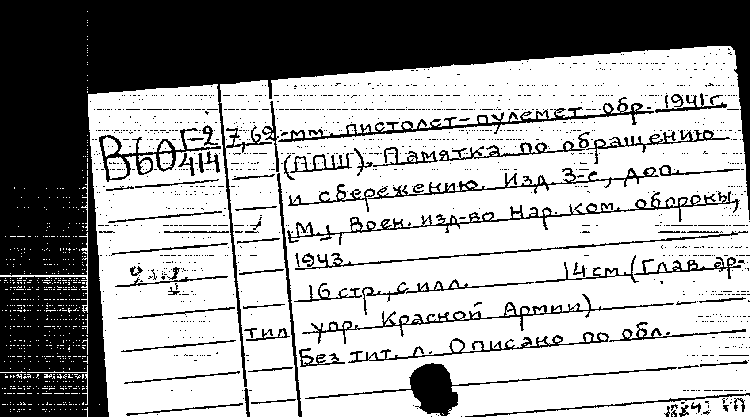 В60 Г-2/414
7,62-мм. пистолет-пулемет обр. 1941 г.
(ППШ). Памятка по обращению
и сбережению. Изд. 3-е, доп.
[М.], Воен. изд-во Нар. ком. обороны,
1943.
16 стр., с илл. 14 см. (Глав. ар-
тил. упр. Красной Армии).
Без тит. л. Описано по обл.